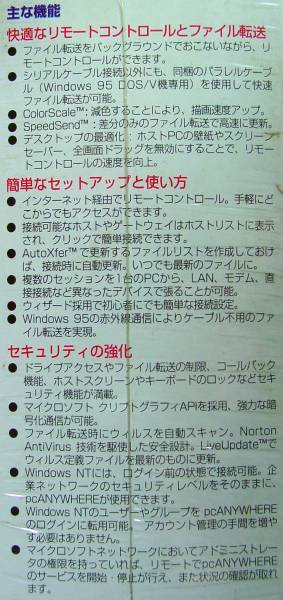 主な機能
快適なリモートコントロールとファイル転送
● ファイル転送をバックグラウンドでおこないながら、リ
モートコントロールができます。
● シリアルケーブル接続以外にも、同梱のパラレルケーブ
ル（Windows 95 DOS/V機専用）を使用して快速
ファイル転送が可能。
● ColorScale™：減色することにより、描画速度アップ。
● SpeedSend™：差分のみのファイル転送で高速に更新。
● デスクトップの最適化：ホストPCの壁紙やスクリーン
セーバー、全画面ドラッグを無効にすることで、リモー
トコントロールの速度を向上。
簡単なセットアップと使い方
● インターネット経由でリモートコントロール。手軽にど
こからでもアクセスができます。
● 接続可能なホストやゲートウェイはホストリストに表示
され、クリックで簡単接続できます。
● AutoXfer™で更新するファイルリストを作成しておけ
ば、接続時に自動更新。いつでも最新のファイルに。
● 複数のセッションを1台のPCから、LAN、モデム、直
接接続など異ったデバイスで張ることが可能。
● ウィザード採用で初心者にでも簡単な接続設定。
● Windows 95の赤外線通信によりケーブル不用のファ
イル転送を実現。
セキュリティの強化
● ドライブアクセスやファイル転送の制限、コールバック
機能、ホストスクリーンやキーボードのロックなどセキ
ュリティ機能が満載。
● マイクロソフト クリプトグラフィAPIを採用、強力な暗
号化通信が可能。
● ファイル転送時にウィルスを自動スキャン。Norton
AntiVirus 技術を駆使した安全設計。LiveUpdate™で
ウィルス定義ファイルを最新のものに更新。
● Windows NTには、ログイン前の状態で接続可能。企
業ネットワークのセキュリティレベルをそのままに、
pcANYWHEREが使用できます。
● Windows NTのユーザーやグループを pcANYWHERE
のログインに転用可能。 アカウント管理の手間を増や
す必要はありません。
● マイクロソフトネットワークにおいてアドミニストレー
タの権限を持っていれば、リモートでpcANYWHERE
のサービスを開始・停止が行え、また状況の確認が取れ
ます。